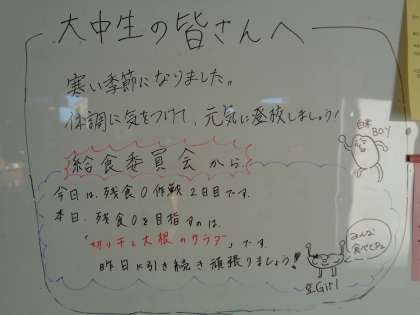 大中生の皆さんへ
寒い季節になりました。
体調に気をつけて、元気に登校しましょう!
給食委員会から
今日は、残食0作戦2日目です。
本日、残食0を目指すのは、
「切り干し大根のサラダ」です。
昨日に引き続き頑張りましょう!
白米
BOY
みんな
食べてネ
Girl